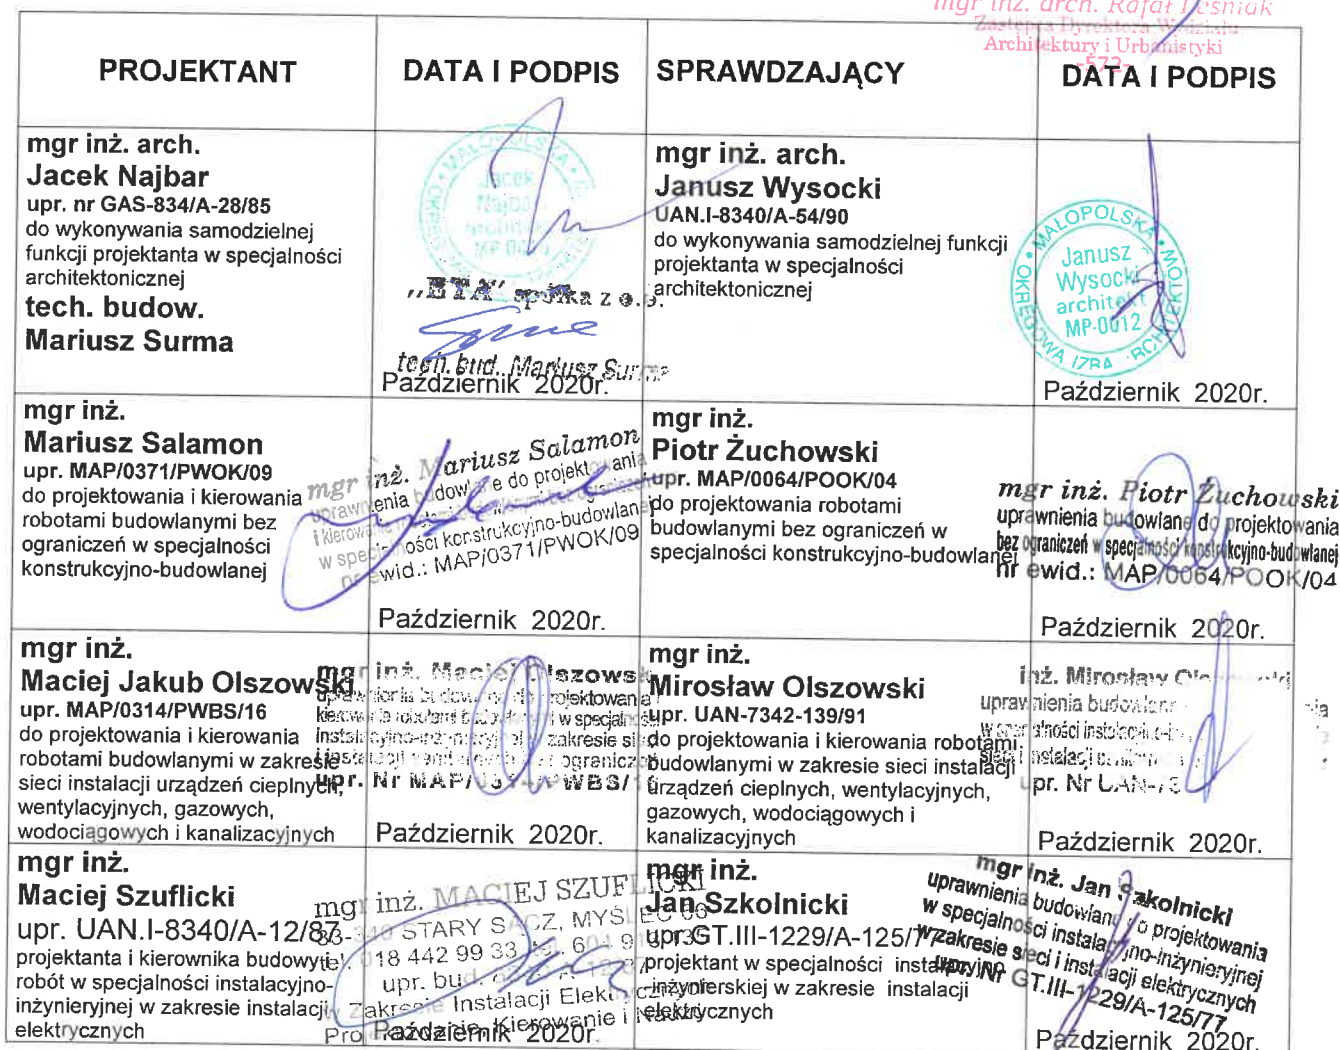 mgr inż. arch. Rafał Leśniak
Zastępca Dyrektora Wydziału
Architektury i Urbanistyki
-572-
PROJEKTANT
DATA I PODPIS
SPRAWDZAJĄCY
DATA I PODPIS
mgr inż. arch.
Jacek Najbar
upr. nr GAS-834/A-28/85
do wykonywania samodzielnej
funkcji projektanta w specjalności
architektonicznej
tech. budow.
Mariusz Surma
MAŁOPOLSKA
Jacek
architekt
„ETA" spółka z o.o.
tech. bud. Mariusz Surma
Październik 2020r.
mgr inż. arch.
Janusz Wysocki
UAN.I-8340/A-54/90
do wykonywania samodzielnej funkcji
projektanta w specjalności
architektonicznej
MAŁOPOLSKA
OKRĘGOWA IZBA
Janusz
Wysocki
architekt
MP-0012
Październik 2020r.
mgr inż.
Mariusz Salamon
upr. MAP/0371/PWOK/09
do projektowania i kierowania
robotami budowlanymi bez
ograniczeń w specjalności
konstrukcyjno-budowlanej
mgr inż. Mariusz Salamon
uprawnienia budowlane do projektowania
w specjalności konstrukcyjno-budowlanej
nr ewid.: MAP/0371/PWOK/09
Październik 2020r.
mgr inż.
Piotr Żuchowski
upr. MAP/0064/POOK/04
do projektowania robotami
budowlanymi bez ograniczeń w
specjalności konstrukcyjno-budowlanej
mgr inż. Piotr Żuchowski
uprawnienia budowlane do projektowania
bez ograniczeń w specjalności konstrukcyjno-budowlanej
nr ewid.: MAP/0064/POOK/04
Październik 2020r.
mgr inż.
Maciej Jakub Olszowski
upr. MAP/0314/PWBS/16
do projektowania i kierowania
robotami budowlanymi w zakresie
sieci instalacji urządzeń cieplnych,
wentylacyjnych, gazowych,
wodociągowych i kanalizacyjnych
mgr inż. Maciej Olszowski
upr. Nr MAP/0314/PWBS/16
Październik 2020r.
mgr inż.
Mirosław Olszowski
upr. UAN-7342-139/91
do projektowania i kierowania robotami
budowlanymi w zakresie sieci instalacji
urządzeń cieplnych, wentylacyjnych,
gazowych, wodociągowych i
kanalizacyjnych
inż. Mirosław
uprawnienia budowlane
upr. Nr UAN-73
Październik 2020r.
mgr inż.
Maciej Szuflicki
upr. UAN.I-8340/A-12/87
projektanta i kierownika budowy
robót w specjalności instalacyjno-
inżynieryjnej w zakresie instalacji
elektrycznych
mgr inż. MACIEJ SZUFLICKI
33-340 STARY SĄCZ, MYŚLEC 66
tel. 018 442 99 33
upr. bud.
Zakresie Instalacji Elektrycznych
Kierowanie i Nadzór
Październik 2020r.
mgr inż.
Jan Szkolnicki
upr.GT.III-1229/A-125/77
projektant w specjalności instalacyjno
-inżynierskiej w zakresie instalacji
elektrycznych
mgr inż. Jan Szkolnicki
uprawnienia budowlane do projektowania
w specjalności instalacyjno-inżynieryjnej
w zakresie sieci i instalacji elektrycznych
upr. Nr GT.III-1229/A-125/77
Październik 2020r.